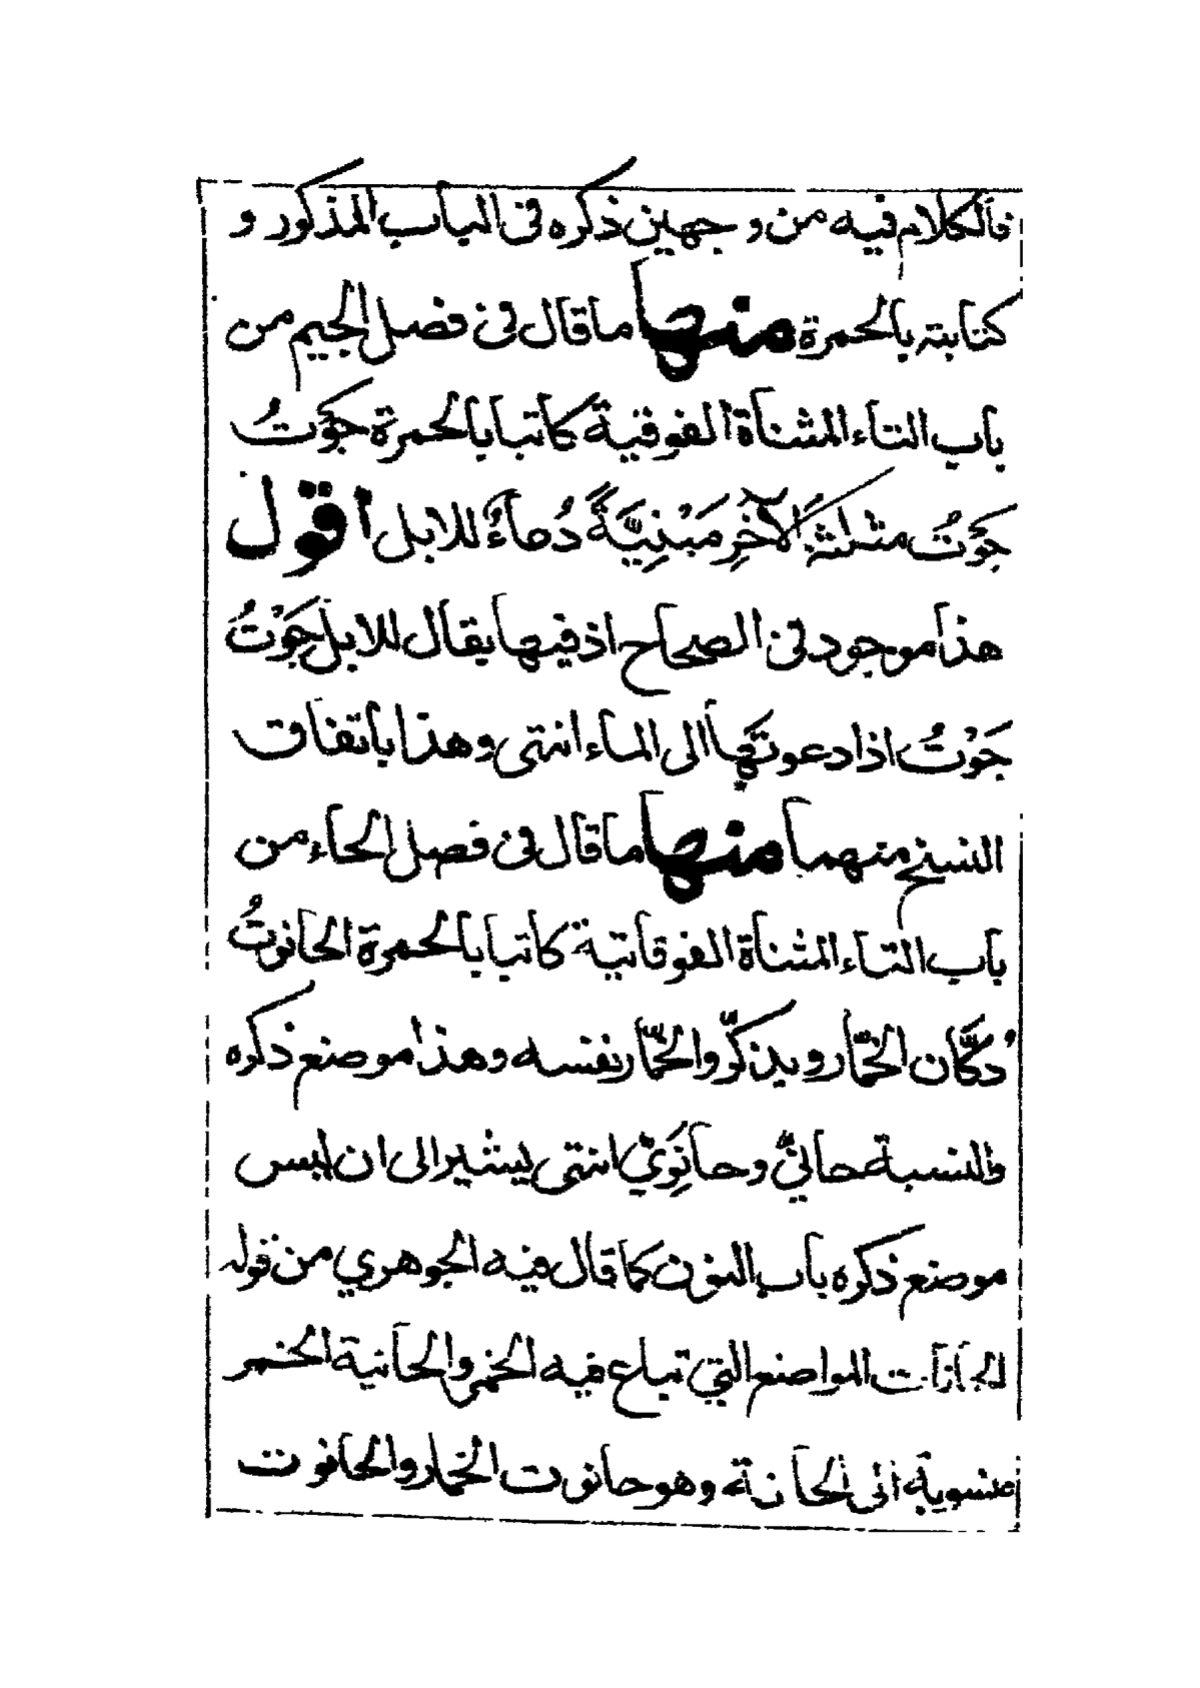 فالكلام فيه من وجهين ذكره في الباب المذكور و
كتابته بالحمرة منها ما قال في فصل الجيم من
باب التاء المثناة الفوقية كاتبا بالحمرة جَوْتُ
جَوْتُ مثلثة الآخِرِ مَبْنِيَّةً دُعآءٌ للابل اقول
هذا موجود في الصحاح اذ فيها يقال للابل جَوْتُ
جَوْتُ اذا دعوتَها الى الماء انتهى وهذا باتفاق
النسخ منهما منها ما قال في فصل الحاء من
باب التاء المثناة الفوقاتية كاتبا بالحمرة الحانوتُ
دُكَّان الخمّار ويذكّر والخمّار نفسه وهذا موضع ذكره
والنسبة حانيٌّ وحانَوِيٌّ انتهى يشير الى ان ليس
موضع ذكره باب النون كما قال فيه الجوهري من قوله
الحانات المواضع التي تباع فيه الخمر والحانية الخمر
منسوبة الى الحانة وهو حانوت الخمار والحانوت